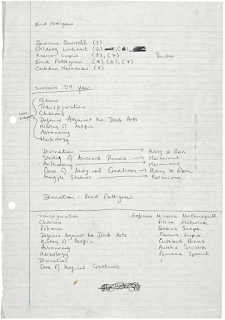 Enid Pettigrew
Quirinus Quirrell (1)
Gilderoy Lockhart (2)
Remus Lupin (3), (7)
Enid Pettigrew (4), (6), (7)
Oakden Hobday (5)
Subjects 3rd Year
Potions
Transfiguration
Charms
Defence Against the Dark Arts
History of Magic
Astronomy
Herbology
Divination → Harry & Ron
Study of Ancient Runes → Hermione
Arithmancy → Hermione
Care of Magical Creatures → Harry & Ron
Muggle Studies → Hermione
Divination: Enid Pettigrew
Transfiguration Professor Minerva McGonagall
Charms Filius Flitwick
Potions Severus Snape
Defence Against the Dark Arts Remus Lupin
History of Magic Cuthbert Binns
Astronomy Aurora Sinistra
Herbology Pomona Sprout
Divination
Care Of Magical Creatures